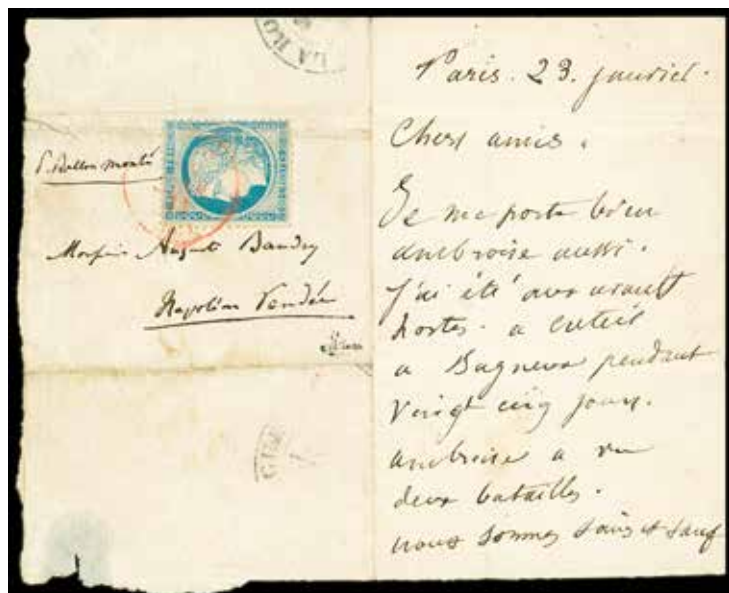 LA RO
P. Ballon monté
Monsieur Auguste Baudry
Napoléon Vendée
Paris. 23. janvier.
Chers amis.
Je me porte bien
ambroise aussi.
J'ai été aux avant
Postes. a Cr
a Bagneux pendant
Vingt cinq jours.
ambroise a vu
deux batailles.
nous sommes sains et sauf